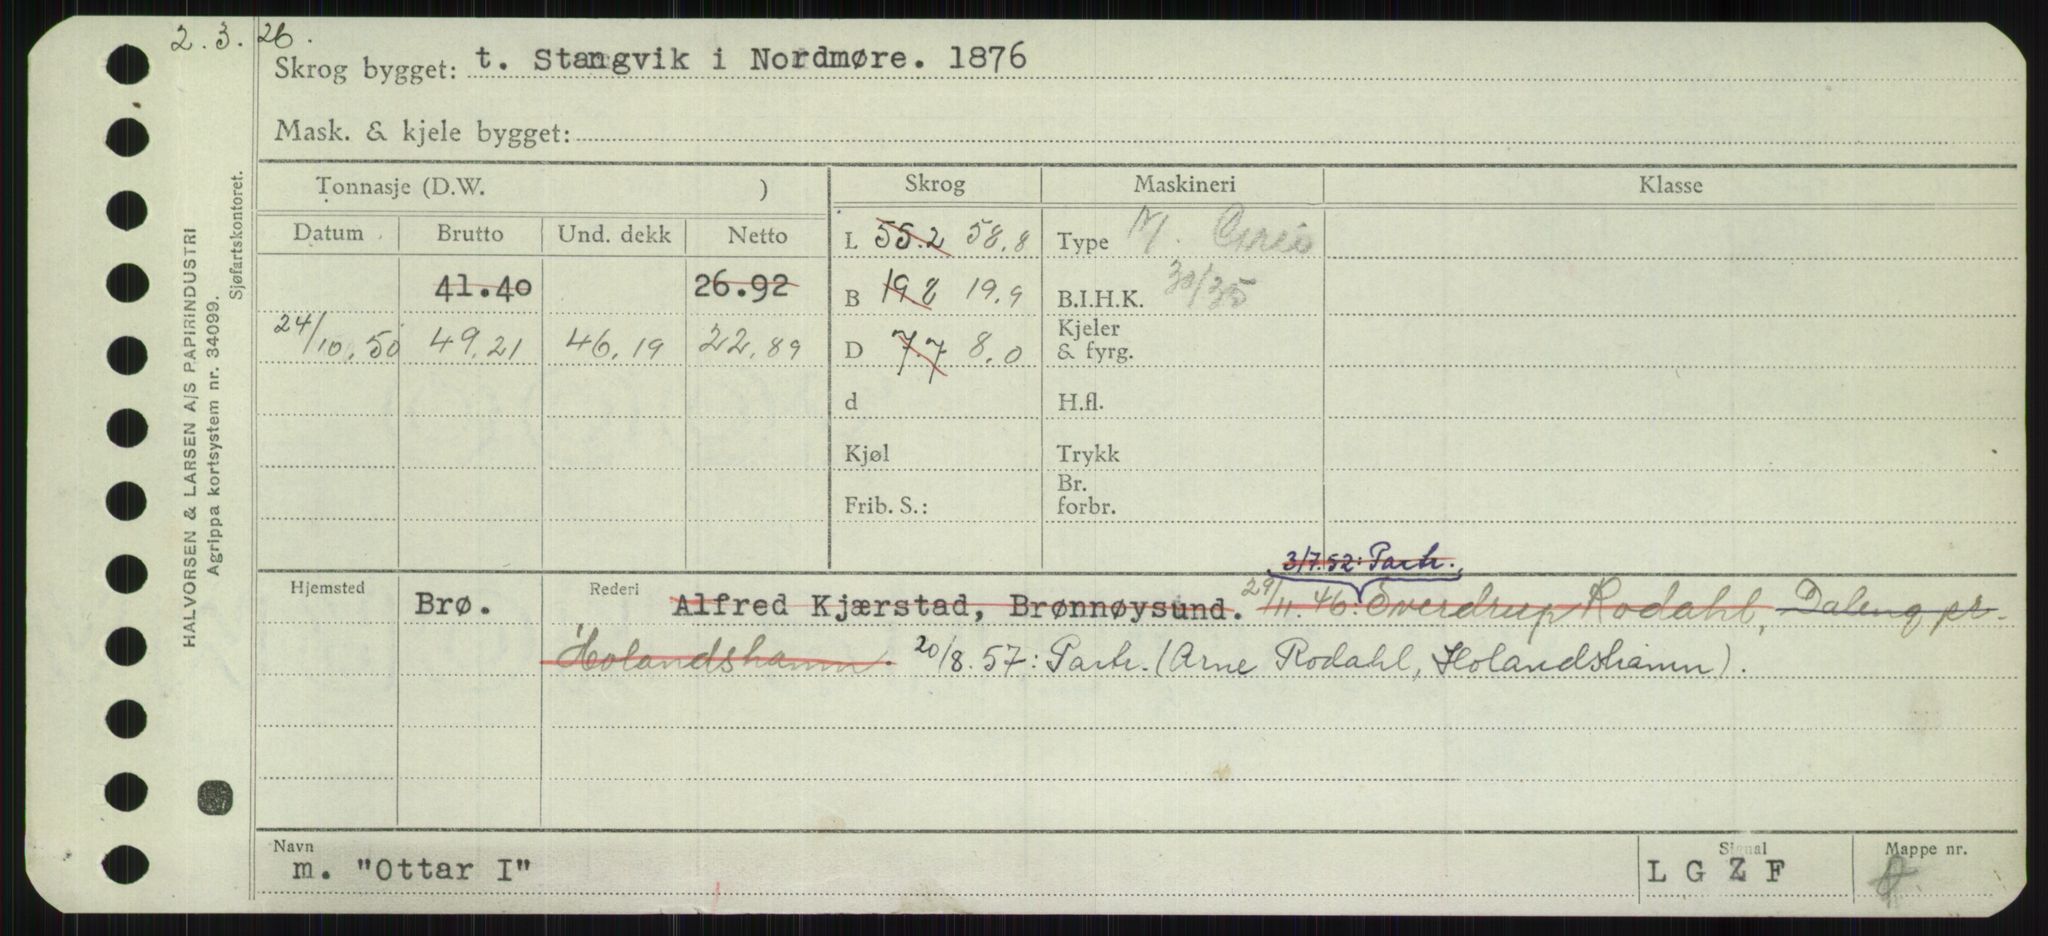 2.3.26.
Skrog bygget: t. Stangvik i Nordmøre. 1876
Mask. & kjele bygget:
HALVORSEN & LARSEN A/S PAPIRINDUSTRI
Agrippa kortsystem nr. 34099.
Sjøfartskontoret.
Tonnasje (D.W. ) Skrog Maskineri Klasse
Datum Brutto Und. dekk Netto
L 55.2 58.8 Type M.
41.40 26.92 B 19.8 19.9 B.I.H.K. 30/35
24/10.50 49.21 46.19 22.89 D 7.7 8.0 Kjeler & fyrg.
d H.fl.
Kjøl Trykk
Frib. S.: Br. forbr.
3/7.52: Partr.
Hjemsted Brø. Rederi Alfred Kjærstad, Brønnøysund. 29/11.46: Overdrup Rodahl, Daleng pr.
Holandshamn. 20/8.57: Partr. (Arne Rodahl, Holandshamn).
Navn Signal Mappe nr.
m. "Ottar I" L G Z F